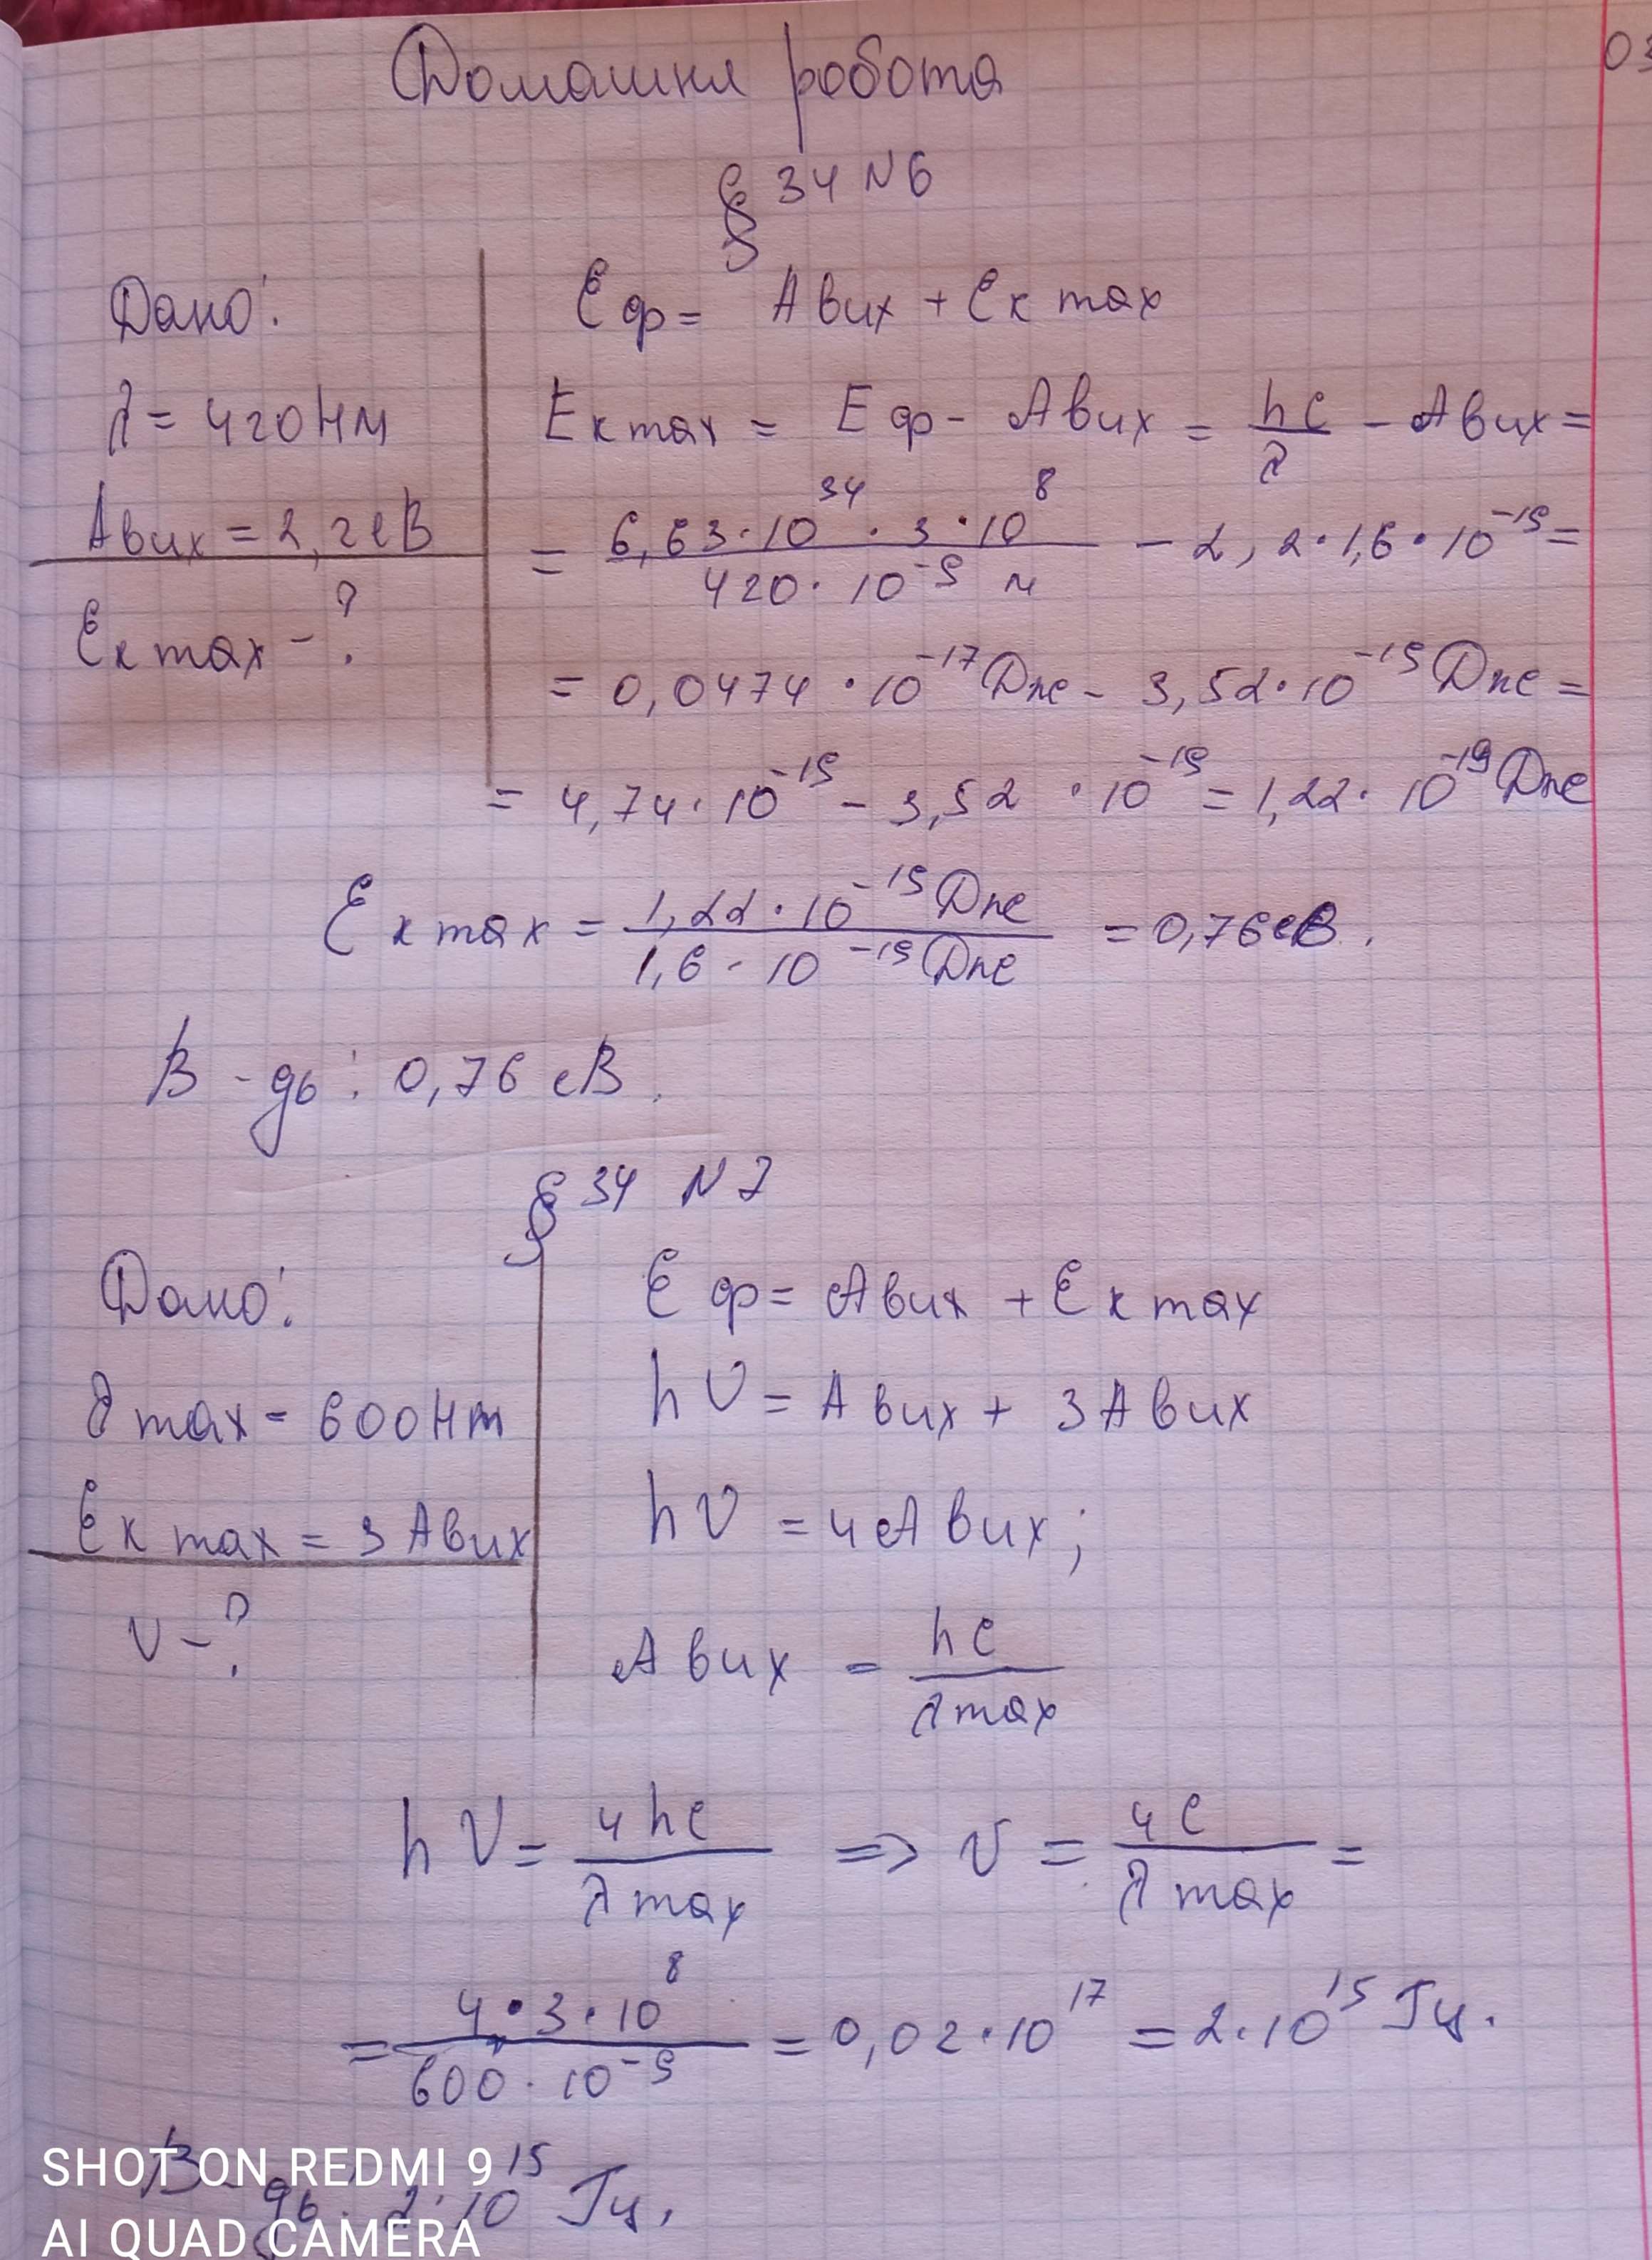 Домашня робота
03
§ 34 N 6
Дано:
λ = 420 нм
Aвих = 2,2 еВ
Eк max - ?
Eф = Aвих + Eк max
Eк max = Eф - Aвих = hc/λ - Aвих =
= 6,63·10^34 · 3·10^8 / 420·10^-9 м - 2,2·1,6·10^-19 =
= 0,0474·10^-17 Дж - 3,52·10^-19 Дж =
= 4,74·10^-19 - 3,52·10^-19 = 1,22·10^-19 Дж
Eк max = 1,22·10^-19 Дж / 1,6·10^-19 Дж = 0,76 еВ.
В-дь: 0,76 еВ.
§ 34 N 7
Дано:
λ max = 600 нm
Eк max = 3 Aвих
ν - ?
Eф = Aвих + Eк max
hν = Aвих + 3 Aвих
hν = 4 Aвих;
Aвих = hc/λ max
hν = 4hc/λ max => ν = 4c/λ max =
= 4·3·10^8 / 600·10^-9 = 0,02·10^17 = 2·10^15 Гц.
В-дь: 2·10^15 Гц.
SHOT ON REDMI 9
AI QUAD CAMERA